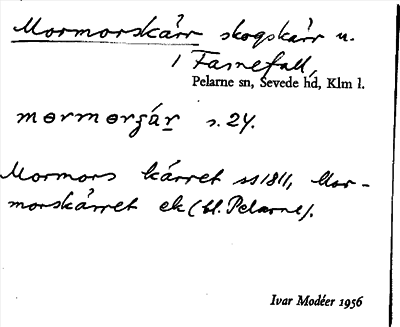 Mormorskärr skogskärr n.
i Farnefall,
Pelarne sn, Sevede hd, Klm l.
mormorʒár s. 24.
Mormors kärret ss 1811, Mor-
morskärret ek (bl. Pelarne).
Ivar Modéer 1956